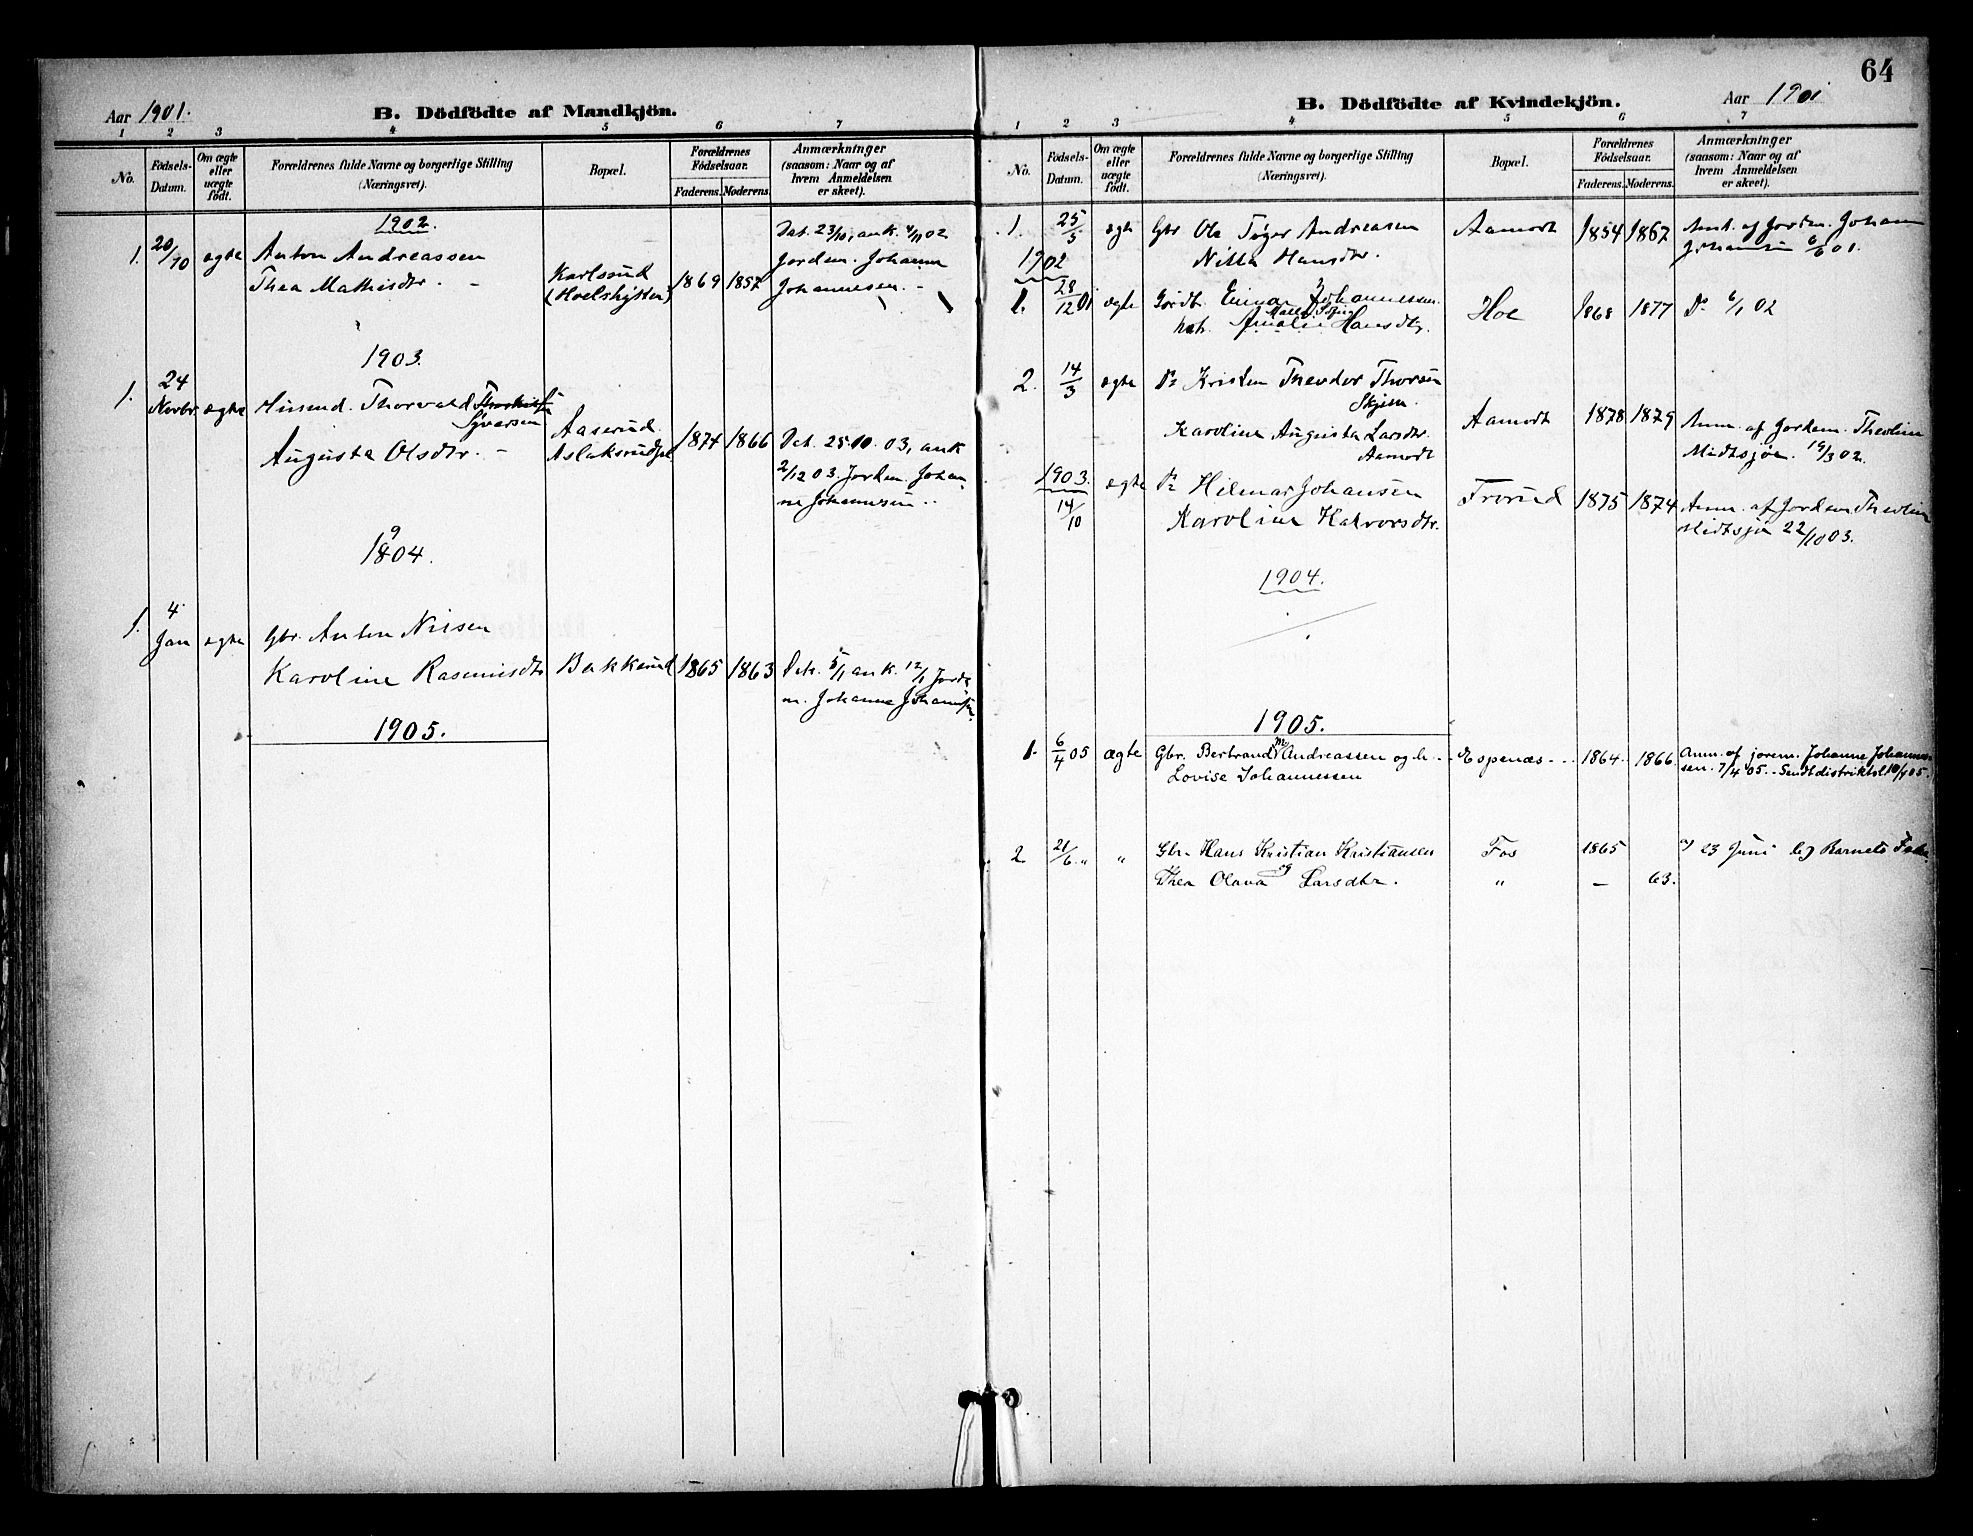 Aar 1901.
B. Dödfödte af Mandkjön.
1 2 3 4 5 6 7
No.
Födsels-Datum.
Om ægte eller uægte födt.
Forældrenes fulde Navne og borgerlige Stilling (Næringsvei).
Bopæl.
Forældrenes Födselsaar.
Faderens. Moderens.
Anmærkninger (saasom: Naar og af hvem Anmeldelsen er skeet).
1902.
1. 20/10 ægte Anton Andreassen
Thea Mathisdtr. -
Karlsrud
(Hoelshytten)
1869 1857
Dat. 23/10, ank. 4/11 02
Jordem. Johanne
Johannesen. -
1903.
1. 24 Novbr. ægte Husmd. Thorvald
Syversen
Augusta Olsdtr. -
Aaserud
1874 1866
Dat. 25.10.03, ank
2/12 03. Jordm. Johan-
ne Johannesen. .
1904.
1. 4 Jan ægte Gbr. Anton Nilsen
Karoline Rasmusdtr
Bakkerud 1865 1863
Dat. 5/1, ank. 12/1 Jorde
m. Johanne Johannsen.
1905.
64
B. Dödfödte af Kvindekjön.
Aar 1901
1 2 3 4 5 6 7
No.
Födsels-Datum.
Om ægte eller uægte födt.
Forældrenes fulde Navne og borgerlige Stilling (Næringsvei).
Bopæl.
Forældrenes Födselsaar.
Faderens. Moderens.
Anmærkninger (saasom: Naar og af hvem Anmeldelsen er skeet).
1. 25/5 ægte Gbr Ole Andreasen
Hansdtr.
Aamodt 1854 1867
Anm. af Jordem. Johanne
Johannesen 6/6 01.
1902
1. 28/12 01 ægte Einar Johannessen
Amalie Hansdtr.
Hoe 1868 1877 Do 6/1 02
2. 14/3 ægte Do Kristen Theodor Thorsen
Skjen.
Karoline Augusta Larsdtr.
Aamodt
Aamodt 1878 1879
Anm. af Jordem. Theoline
Midtsjøe. 19/3 02.
1903.
14/10 ægte Do Hilmar Johansen
Karoline Halvorsdtr.
Frorud 1875 1874
Anm. af Jordem Theoline
Midtsjøe 22/10 03.
1904.
1905.
1. 6/4 05 ægte Gbr. Bertrand M. Andreassen og h.
Lovise Johannessen
Espenæs 1864 1866
Anm. af jorem. Johanne Johannes-
sen. 7/4 05. - Sendt distriktsl. 10/4 05.
2. 21/6 „ „ Gbr. Hans Kristian Kristiansen
og
Thea Olava Larsdtr.
Fos 1865
„ - 63.
a) 23 Juni b) Barnets Fader